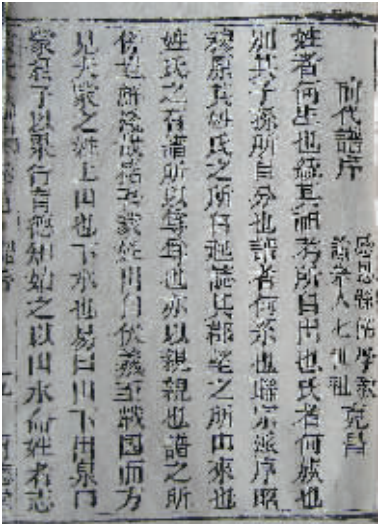 前代譜序
感恩縣儒學教
諭 人七世祖 克昌
姓者何生也統其祖考所自出也氏者何族也
別其子孫所自分也譜者何系也聯宗派序昭
穆原其姓氏之所自起誌其郡望之所由來也
姓氏之有譜所以尊尊也亦以親親也譜之所
淺哉 蒙姓出自伏羲至戰国而方
見夫蒙之姓上山也下水也易曰山下出泉曰
蒙君子以果行育德知始之以山水命姓者志